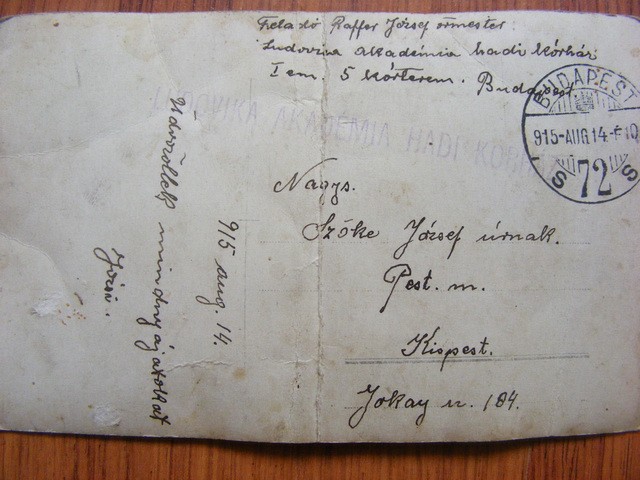 Feladó Raffer József őrmester.
Ludovica akadémia hadi kórház
I em. 5 kórterem. Budapest
LUDOVIKA AKADÉMIA HADI KÓRH
BUDAPEST
915-AUG 14
S 72 S
Nagys.
Szőke József úrnak.
Pest. m.
Kispest.
Jokay u. 184.
915 aug. 14.
Üdvözöllek mindnyájatokat
Józsi.